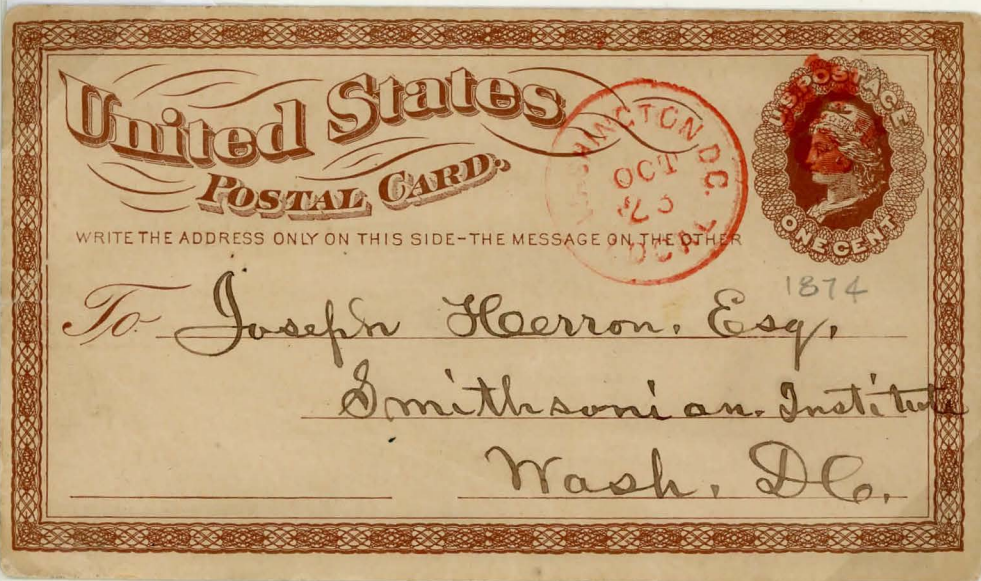 United States
POSTAL CARD.
WRITE THE ADDRESS ONLY ON THIS SIDE-THE MESSAGE ON THE OTHER
WASHINGTON D.C.
OCT
23
U.S. POSTAGE
ONE CENT
1874
To Joseph Herron. Esq.
Smithsonian. Institute
Wash. DC.